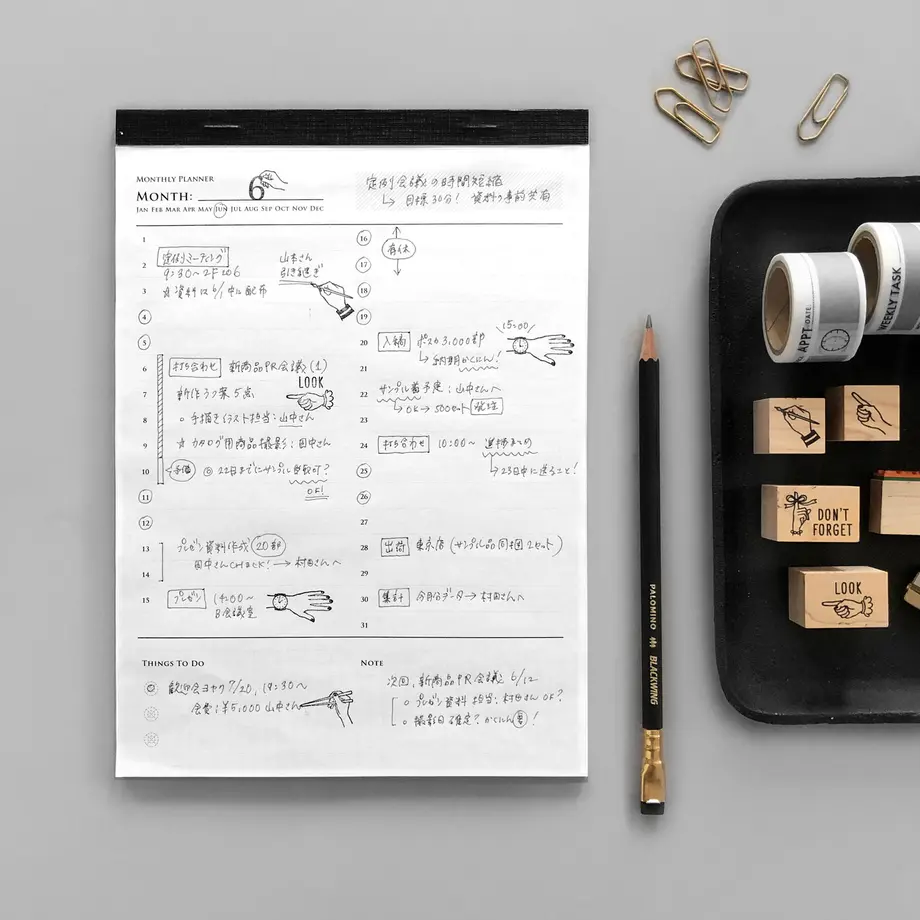 MONTHLY PLANNER
MONTH: 6
JAN FEB MAR APR MAY JUN JUL AUG SEP OCT NOV DEC
定例会議の時間短縮
↳ 目標30分! 資料の事前共有
1
2 定例ミーティング
9:30〜2F 206
山本さん
引き継ぎ
3 ☆資料は6/1中に配布
4
5
6 打ち合わせ 新商品PR会議(1)
7 新作ラフ案5点
LOOK
8 ○手描きイラスト担当:山中さん
9 ☆カタログ用商品撮影:田中さん
10 ◎22日までにサンプル受取可?
OK!
11
12
13 プレゼン資料作成 20部
14 田中さんCHECK! → 村田さんへ
15 プレゼン 14:00〜
B会議室
16
有休
17
18
19
20 入稿 ポスカ3,000部
15:00
21 ↳ 納期かくにん!
22 サンプル着予定:山中さんへ
23 ↳ OK → 500セット
24 打ち合わせ 10:00〜
25 ↳ 23日中に送ること!
26
27
28 出荷 東京店(サンプル品 2セット)
29
30 集計 今月分データ → 村田さんへ
31
THINGS TO DO
歓迎会ヨヤク 7/20, 19:30〜
会費:¥5,000 山中さん
NOTE
次回、新商品PR会議 6/12
○ プレゼン資料 担当:村田さんOK?
○ 撮影日確定? かくにん!
PALOMINO BLACKWING
APPT DATE
WEEKLY TASK
DON'T
FORGET
LOOK